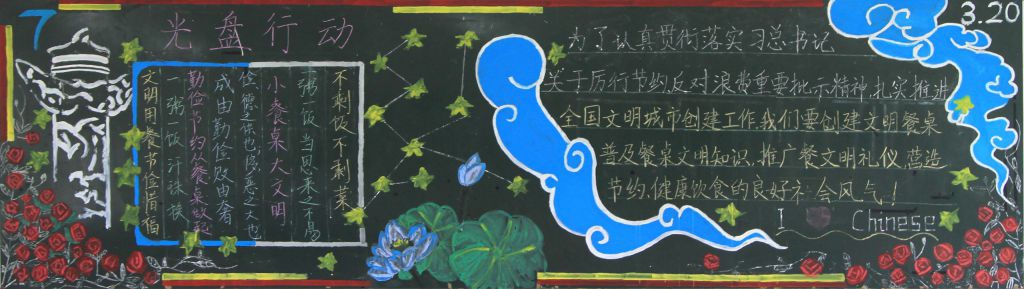 7
光盘行动
不剩饭不剩菜
粥一饭当思来之不易
小餐桌大文明
俭德之共也侈恶之大也
成由勤俭败由奢
勤俭节约从餐桌做起
一粥一饭汗珠换
文明用餐
3.20
为了认真贯彻落实习总书记
关于厉行节约,反对浪费重要批示精神,扎实推进
全国文明城市创建工作,我们要创建文明餐桌
普及餐桌文明知识,推广餐文明礼仪,营造
节约,健康饮食的良好社会风气!
I Chinese